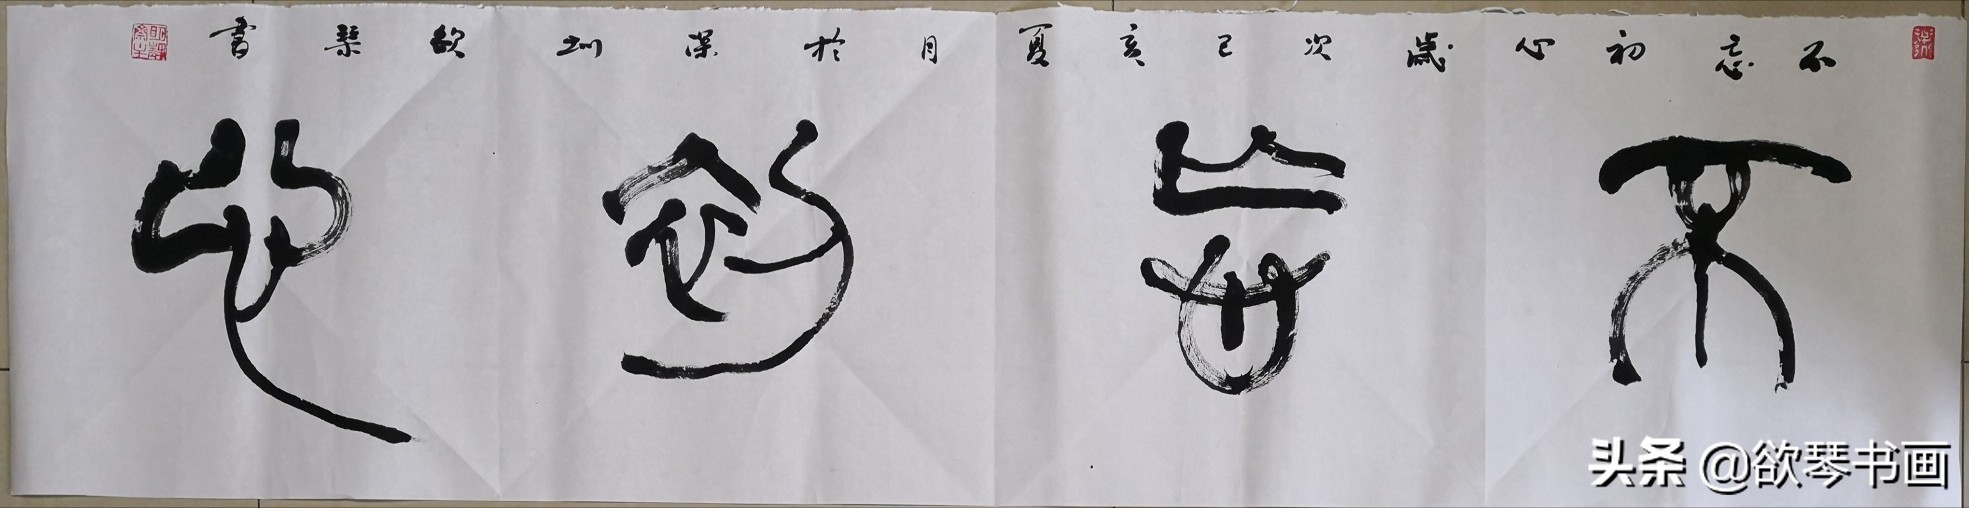 不忘初心歲次己亥夏月於深圳欲琴書
不忘初心
头条 @欲琴书画